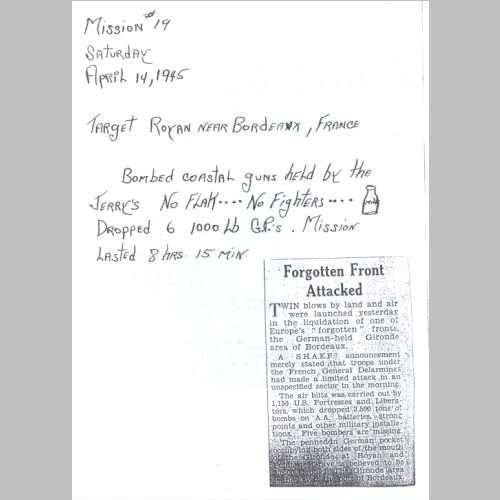 Mission #19
Saturday
April 14, 1945
Target Royan near Bordeaux, France
Bombed coastal guns held by the
Jerry's No Flak.... No Fighters....
milk
Dropped 6 1000 Lb G.P.'s. Mission
Lasted 8 hrs. 15 min.
Forgotten Front
Attacked
TWIN blows by land and air
were launched yesterday
in the liquidation of one of
Europe's "forgotten" fronts,
the German-held Gironde
area of Bordeaux.
A S.H.A.E.F. announcement
merely stated that troops under
the French General Delarmines
had made a limited attack in an
unspecified sector in the morning.
The air blitz was carried out by
1,150 U.S. Fortresses and Libera-
tors, which dropped 3,500 tons of
bombs on A.A. batteries, strong
points and other military installa-
tions. Five bombers are missing.
The penned-in German pocket
occupying both sides of the mouth
of the Gironde at Royan and
is believed to be
Gironde area
of Bordeaux.